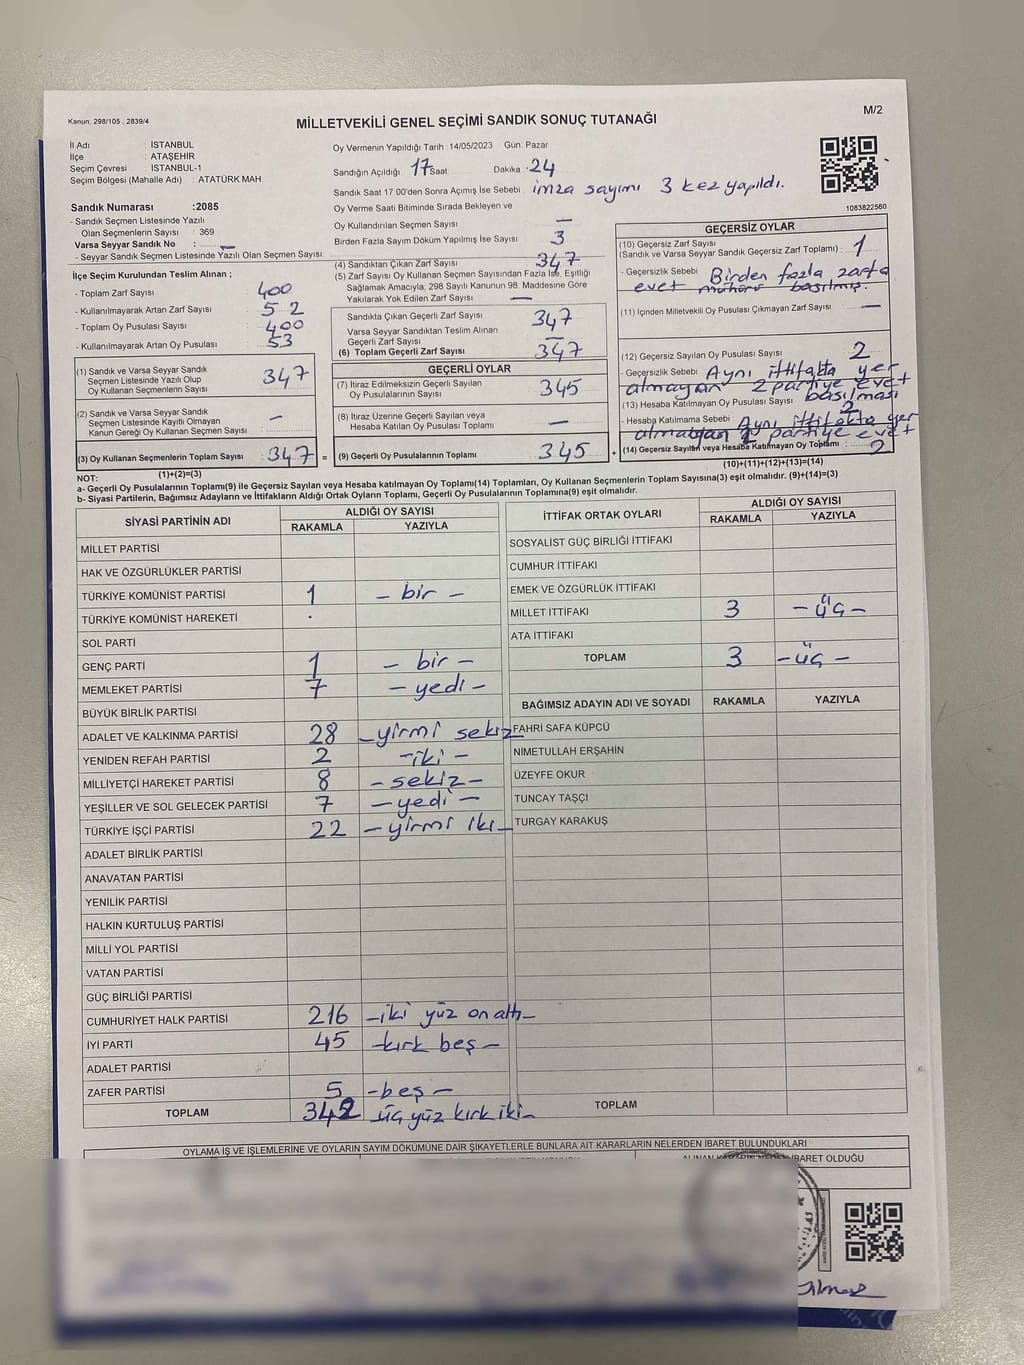 Kanun: 298/105 , 2839/4
M/2
MİLLETVEKİLİ GENEL SEÇİMİ SANDIK SONUÇ TUTANAĞI
İl Adı : İSTANBUL
İlçe : ATAŞEHİR
Seçim Çevresi : İSTANBUL-1
Seçim Bölgesi (Mahalle Adı) : ATATÜRK MAH.
Oy Vermenin Yapıldığı Tarih : 14/05/2023 Gün: Pazar
Sandığın Açıldığı 17 Saat Dakika 24
Sandık Saat 17.00'den Sonra Açımış İse Sebebi imza sayımı 3 kez yapıldı.
Oy Verme Saati Bitiminde Sırada Bekleyen ve
Oy Kullandırılan Seçmen Sayısı —
Birden Fazla Sayım Döküm Yapılmış İse Sayısı 3
1083822560
Sandık Numarası :2085
- Sandık Seçmen Listesinde Yazılı
Olan Seçmenlerin Sayısı : 369
Varsa Seyyar Sandık No : —
- Seyyar Sandık Seçmen Listesinde Yazılı Olan Seçmen Sayısı:
İlçe Seçim Kurulundan Teslim Alınan ;
- Toplam Zarf Sayısı 400
- Kullanılmayarak Artan Zarf Sayısı 52
- Toplam Oy Pusulası Sayısı 400
- Kullanılmayarak Artan Oy Pusulası 53
(1) Sandık ve Varsa Seyyar Sandık
Seçmen Listesinde Yazılı Olup
Oy Kullanan Seçmenlerin Sayısı 347
(2) Sandık ve Varsa Seyyar Sandık
Seçmen Listesinde Kayıtlı Olmayan
Kanun Gereği Oy Kullanan Seçmen Sayısı —
(3) Oy Kullanan Seçmenlerin Toplam Sayısı : 347 =
(1)+(2)=(3)
(4) Sandıktan Çıkan Zarf Sayısı 347
(5) Zarf Sayısı Oy Kullanan Seçmen Sayısından Fazla İse, Eşitliği
Sağlamak Amacıyla, 298 Sayılı Kanunun 98. Maddesine Göre
Yakılarak Yok Edilen Zarf Sayısı —
Sandıkta Çıkan Geçerli Zarf Sayısı 347
Varsa Seyyar Sandıktan Teslim Alınan
Geçerli Zarf Sayısı —
(6) Toplam Geçerli Zarf Sayısı 347
GEÇERLİ OYLAR
(7) İtiraz Edilmeksizin Geçerli Sayılan
Oy Pusulalarının Sayısı 345
(8) İtiraz Üzerine Geçerli Sayılan veya
Hesaba Katılan Oy Pusulası Toplamı —
(9) Geçerli Oy Pusulalarının Toplamı 345 +
GEÇERSİZ OYLAR
(10) Geçersiz Zarf Sayısı
(Sandık ve Varsa Seyyar Sandık Geçersiz Zarf Toplamı) : 1
- Geçersizlik Sebebi Birden fazla zarfa
evet mühürü basılmış.
(11) İçinden Milletvekili Oy Pusulası Çıkmayan Zarf Sayısı —
(12) Geçersiz Sayılan Oy Pusulası Sayısı 2
- Geçersizlik Sebebi Aynı ittifakta yer
almayan 2 partiye evet
basılması
(13) Hesaba Katılmayan Oy Pusulası Sayısı 2
- Hesaba Katılmama Sebebi : Aynı ittifakta yer
almayan 2 partiye evet
(14) Geçersiz Sayılan veya Hesaba Katılmayan Oy Toplamı : 2
(10)+(11)+(12)+(13)=(14)
NOT:
a- Geçerli Oy Pusulalarının Toplamı(9) ile Geçersiz Sayılan veya Hesaba katılmayan Oy Toplamı(14) Toplamları, Oy Kullanan Seçmenlerin Toplam Sayısına(3) eşit olmalıdır. (9)+(14)=(3)
b- Siyasi Partilerin, Bağımsız Adayların ve İttifakların Aldığı Ortak Oyların Toplamı, Geçerli Oy Pusulalarının Toplamına(9) eşit olmalıdır.
SİYASİ PARTİNİN ADI ALDIĞI OY SAYISI
RAKAMLA YAZIYLA
MİLLET PARTİSİ
HAK VE ÖZGÜRLÜKLER PARTİSİ
TÜRKİYE KOMÜNİST PARTİSİ 1 – bir –
TÜRKİYE KOMÜNİST HAREKETİ
SOL PARTİ
GENÇ PARTİ 1 – bir –
MEMLEKET PARTİSİ 7 – yedi –
BÜYÜK BİRLİK PARTİSİ
ADALET VE KALKINMA PARTİSİ 28 – yirmi sekiz
YENİDEN REFAH PARTİSİ 2 – iki –
MİLLİYETÇİ HAREKET PARTİSİ 8 – sekiz –
YEŞİLLER VE SOL GELECEK PARTİSİ 7 – yedi –
TÜRKİYE İŞÇİ PARTİSİ 22 – yirmi iki –
ADALET BİRLİK PARTİSİ
ANAVATAN PARTİSİ
YENİLİK PARTİSİ
HALKIN KURTULUŞ PARTİSİ
MİLLİ YOL PARTİSİ
VATAN PARTİSİ
GÜÇ BİRLİĞİ PARTİSİ
CUMHURİYET HALK PARTİSİ 216 – iki yüz on altı –
İYİ PARTİ 45 – kırk beş –
ADALET PARTİSİ
ZAFER PARTİSİ 5 – beş –
TOPLAM 342 üç yüz kırk iki –
İTTİFAK ORTAK OYLARI ALDIĞI OY SAYISI
RAKAMLA YAZIYLA
SOSYALİST GÜÇ BİRLİĞİ İTTİFAKI
CUMHUR İTTİFAKI
EMEK VE ÖZGÜRLÜK İTTİFAKI
MİLLET İTTİFAKI 3 – üç –
ATA İTTİFAKI
TOPLAM 3 – üç –
BAĞIMSIZ ADAYIN ADI VE SOYADI RAKAMLA YAZIYLA
FAHRİ SAFA KÜPCÜ
NİMETULLAH ERŞAHİN
ÜZEYFE OKUR
TUNCAY TAŞÇI
TURGAY KARAKUŞ
TOPLAM
OYLAMA İŞ VE İŞLEMLERİNE VE OYLARIN SAYIM DÖKÜMÜNE DAİR ŞİKAYETLERLE BUNLARA AİT KARARLARIN NELERDEN İBARET BULUNDUKLARI
ALINAN KARARIN NEDEN İBARET OLDUĞU